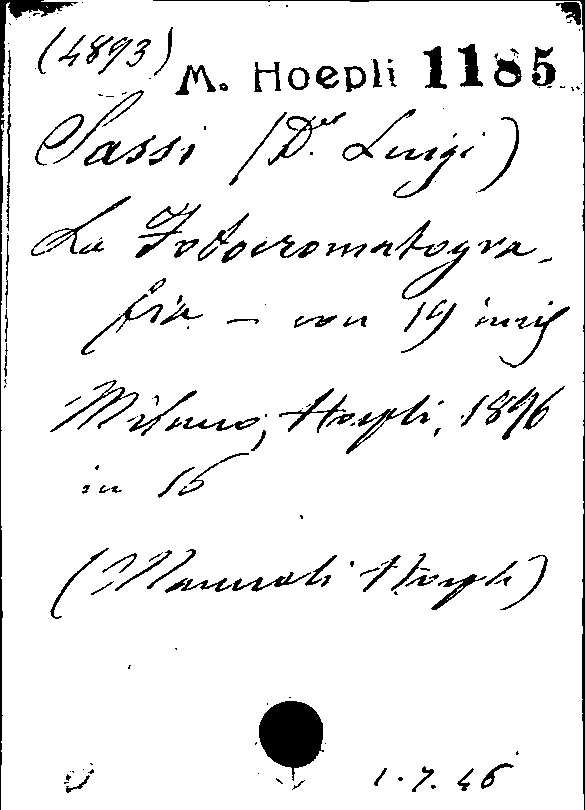 (4893) M. Hoepli 1185
Sassi (D.r Luigi)
La Fotocromatogra-
fia – con 19 incis
Milano, Hoepli, 1896
in 16
(Manuali Hoepli)
1.7.46